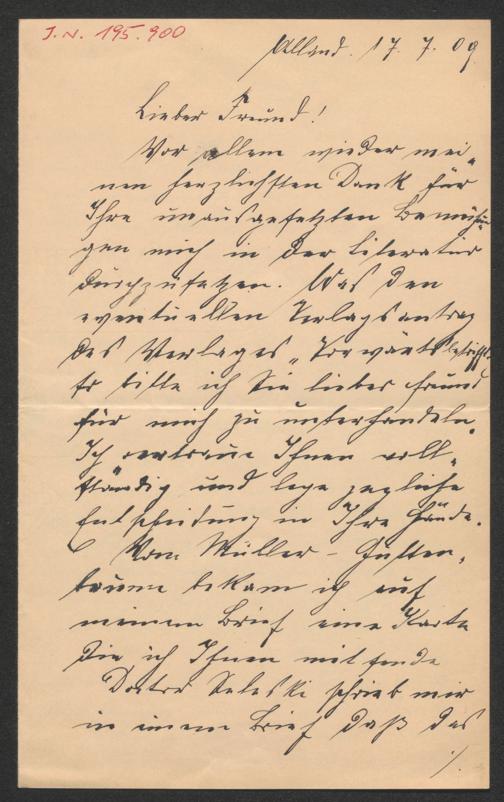 J.N. 195.900
Alland. 17. 7. 09
Lieber Freund!
Vor allem wieder mei„
nen herzlichsten Dank für
Ihre unausgesetzten Bemühun„
gen mich in der Literatur
durchzusetzen. Was den
eventuellen Verlagsantrag
des Verlages „Vorwärts" betrifft
so bitte ich Sie lieber Freund
für mich zu unterhandeln.
Ich vertraue Ihnen voll„
ständig und lege jegliche
Entscheidung in Ihre Hände.
Vom Müller-Gutten„
brunn bekam ich auf
meinen Brief eine Karte
die ich Ihnen mit sende
Doktor schrieb mir
in einem Brief daß das
./.